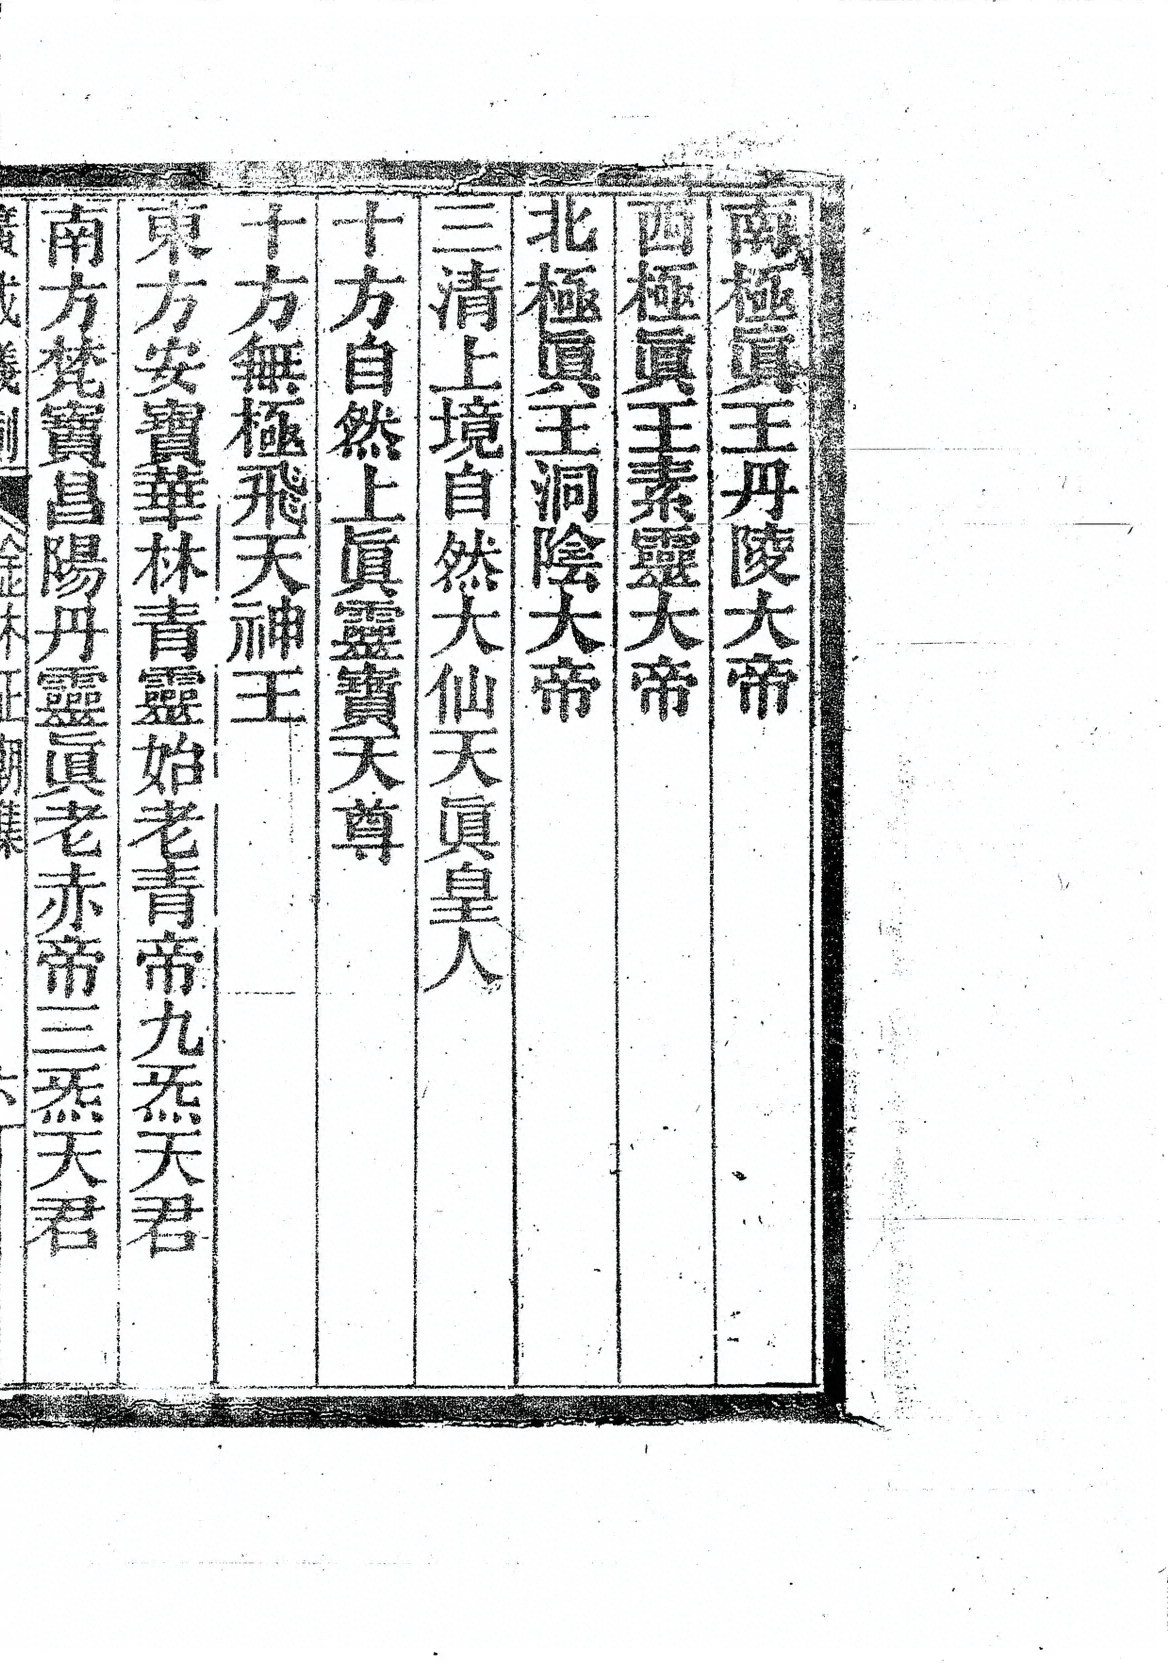 南極眞王丹陵大帝
西極眞王素靈大帝
北極眞王洞陰大帝
三清上境自然大仙天眞皇人
十方自然上眞靈寶天尊
十方無極飛天神王
東方安寶華林青靈始老青帝九炁天君
南方梵寶昌陽丹靈眞老赤帝三炁天君